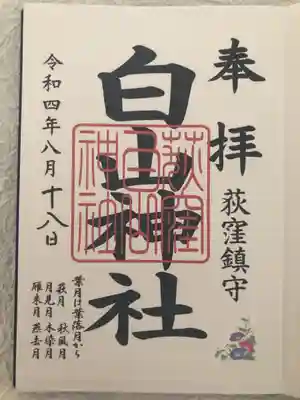 奉拝
荻窪鎮守
白山神社
荻窪白山神社
令和四年八月十八日
葉月は葉落月から
萩月 秋風月
月見月 木染月
雁来月 燕去月